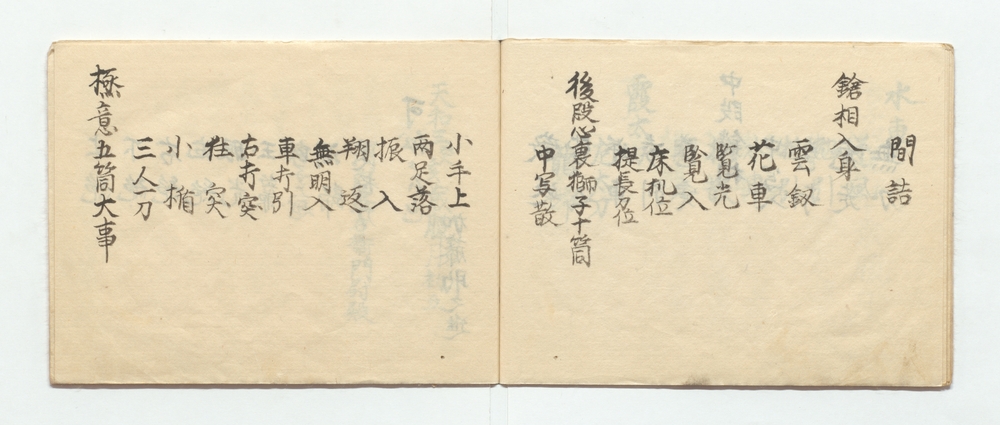 間詰
鎗相入身
雲釼
花車
覧光
覧入
床机位
提長刀位
後段心裏獅子十箇
中写散
小手上
両足落
振入
翔返
無明入
車打引
右打突
柱突
小楯
三人一刀
極意五箇大事